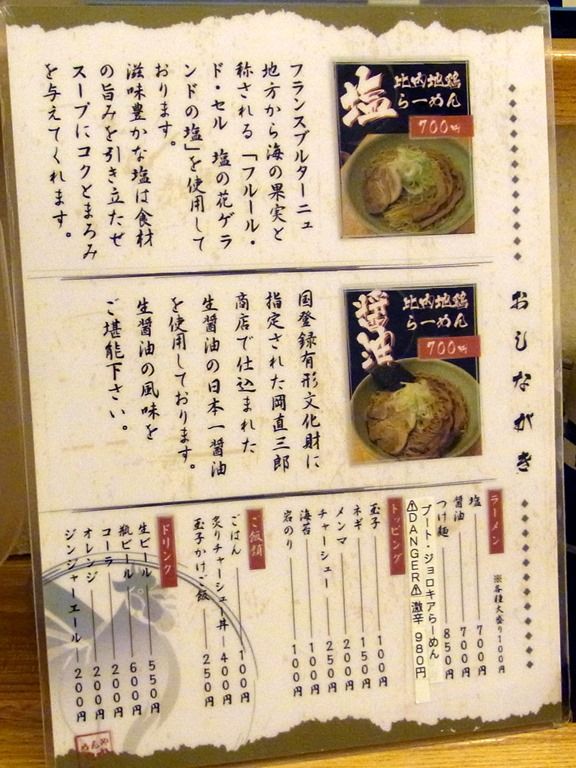 おしながき
塩
比内地鶏
らーめん
700円
フランスブルターニュ
地方から海の果実と
称される「フルール・
ド・セル 塩の花ゲラ
ンドの塩」を使用して
おります。
滋味豊かな塩は食材
の旨みを引き立たせ
スープにコクとまろみ
を与えてくれます。
醤油
比内地鶏
らーめん
700円
国登録有形文化財に
指定された岡直三郎
商店で仕込まれた
生醤油の日本一醤油
を使用しております。
生醤油の風味を
ご堪能下さい。
ラーメン
※各種大盛り100円
塩 700円
醤油 700円
つけ麺 850円
ブート・ジョロキアらーめん
⚠DANGER⚠ 激辛 980円
トッピング
玉子 100円
ネギ 150円
メンマ 200円
チャーシュー 250円
海苔 100円
岩のり 100円
ご飯類
ごはん 100円
炙りチャーシュー丼 400円
玉子かけご飯 250円
ドリンク
生ビール 550円
瓶ビール 600円
コーラ 200円
オレンジ 200円
ジンジャーエール 200円